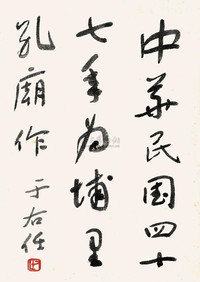 中華民国四十
七年為埔里
孔廟作
于右任